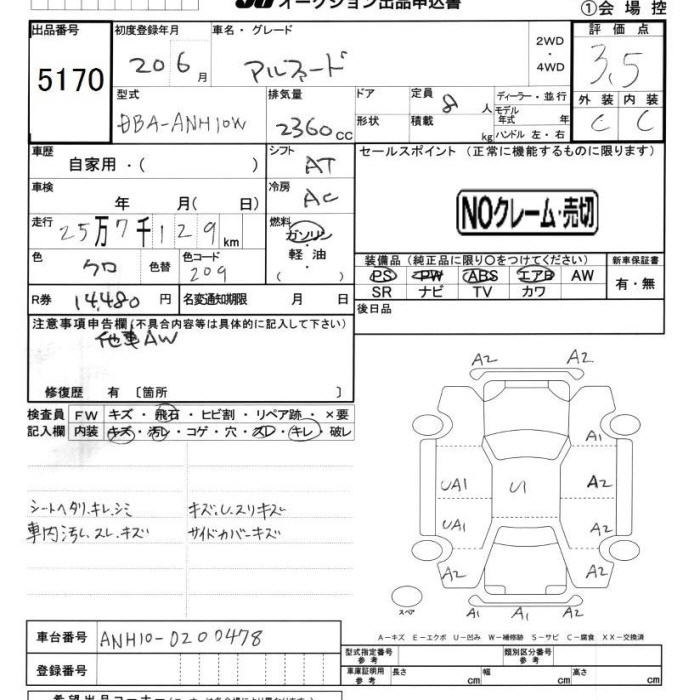 オークション出品申込書
①会場控
出品番号
5170
初度登録年月
20 6月
車名・グレード
アルファード
2WD
・
4WD
評価点
3.5
外装 内装
C C
型式
DBA-ANH10W
排気量
2360cc
ドア
形状
定員 8人
積載 kg
ディーラー・並行
モデル年式 年
ハンドル 左・右
車歴
自家用・( )
シフト
AT
セールスポイント (正常に機能するものに限ります)
NOクレーム・売切
車検
年 月( 日)
冷房
AC
走行
25万7千129km
燃料
ガソリン
軽油
( ・ )
色
クロ
色替
色コード
209
装備品 (純正品に限り○をつけてください)
PS PW ABS エアB AW
SR ナビ TV カワ
新車保証書
有・無
R券
14,480円
名変通知期限 月 日
後日品
注意事項申告欄(不具合内容等は具体的に記入して下さい)
他車AW
修復歴 有 〔箇所 〕
検査員
記入欄
FW キズ・飛石・ヒビ割・リペア跡・×要
内装 キズ・汚レ・コゲ・穴・スレ・キレ・破レ
シートヘタリ.キレ.シミ
車内汚し.スレ.キズ
キズ.U.スリキズ
サイドカバーキズ
A2 A2
A1
UA1 U1 A2
UA1 A2
A2 A2
A1 A1 A2
スペア
A-キズ E-エクボ U-凹み W-補修跡 S-サビ C-腐食 XX-交換済
車台番号
ANH10-0200478
登録番号
型式指定番号
参考
類別区分番号
参考
車庫証明用
参考
長さ cm 幅 cm 高さ cm
希望出品コーナー